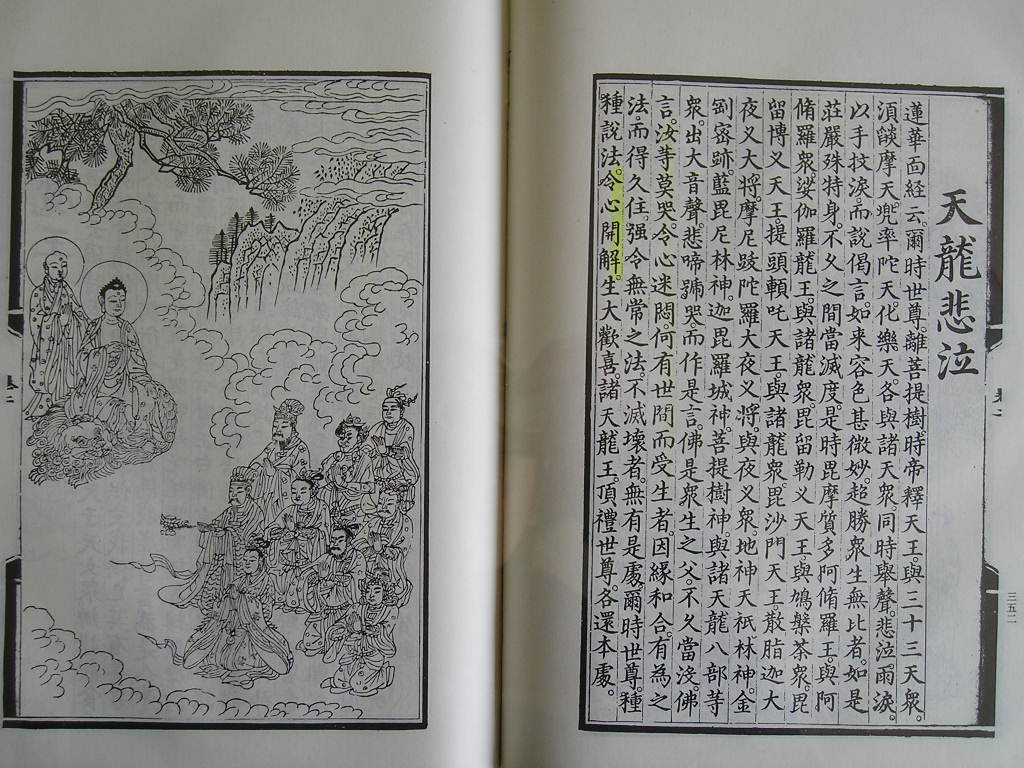 天龍悲泣
蓮華面經云。爾時世尊離菩提樹時。帝釋天王與三十三天衆。
須燄摩天。兜率陀天。化樂天。各與諸天衆。同時舉聲。悲泣雨淚。
以手抆淚。而說偈言。如來容色甚微妙。超勝衆生無比者。如是
莊嚴殊特身。不久之間當滅度。是時毘摩質多阿脩羅王。與阿
脩羅衆。娑伽羅龍王。與諸龍衆。毘留勒叉天王。與鳩槃茶衆。毘
留博叉天王。提頭頼吒天王。與諸龍衆。毘沙門天王。散脂迦大
夜叉大將。摩尼跋陀羅大夜叉將。與夜叉衆。地神天祇林神。金
剛密跡。藍毘尼林神。迦毘羅城神。菩提樹神。與諸天龍八部等
衆。出大音聲。悲啼踊哭。而作是言。佛是衆生之父。不久當沒。佛
言。汝等莫哭。令心迷悶。何有世間而受生者。因緣和合。有為之
法。而得久住。强令無常之法不滅壞者。無有是處。爾時世尊。種
種說法。令心開解。生大歡喜。諸天龍王。頂禮世尊。各還本處。
三五二